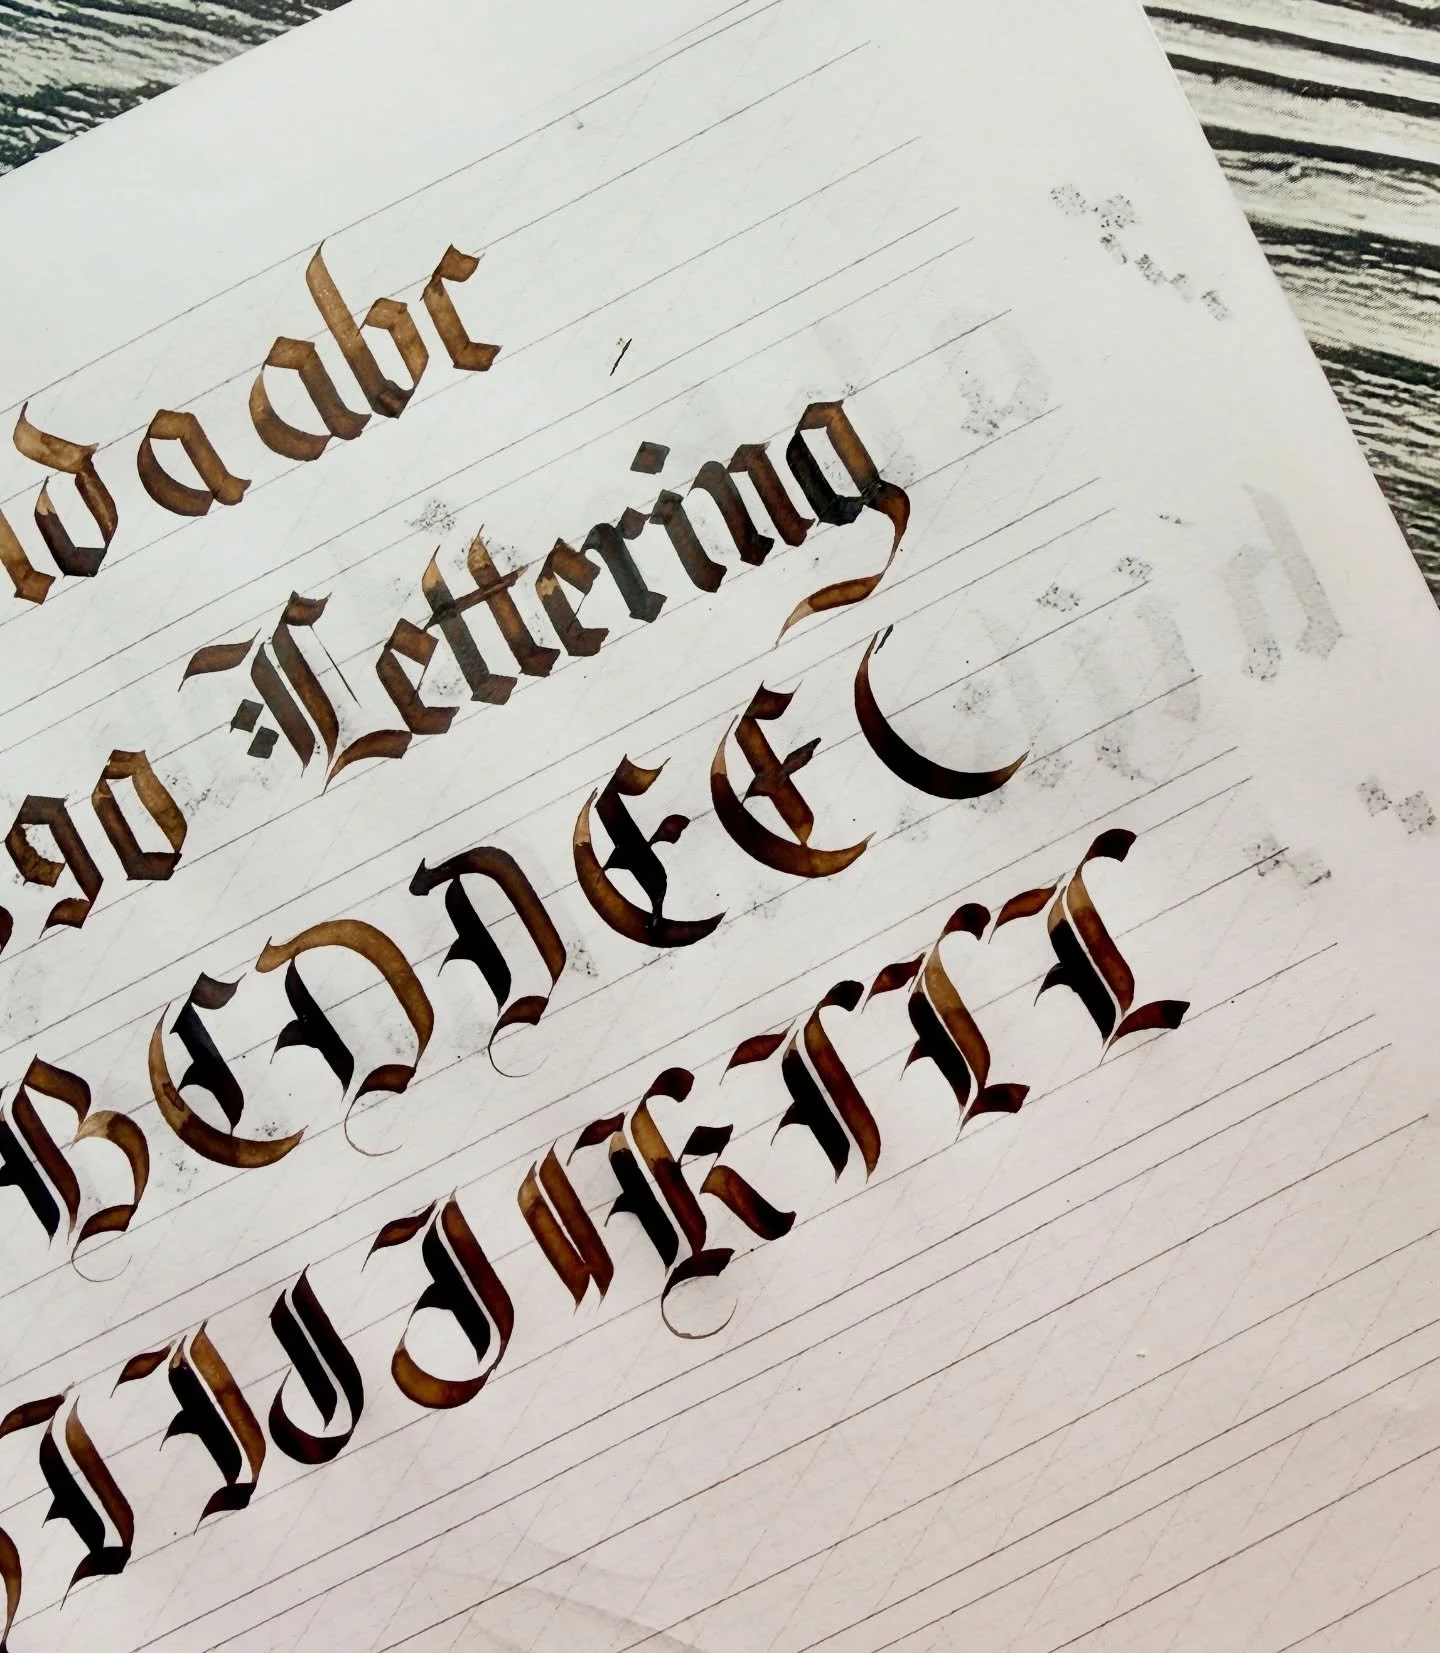 d a abc
go Lettering
BCDDEEC
IIJJKILL